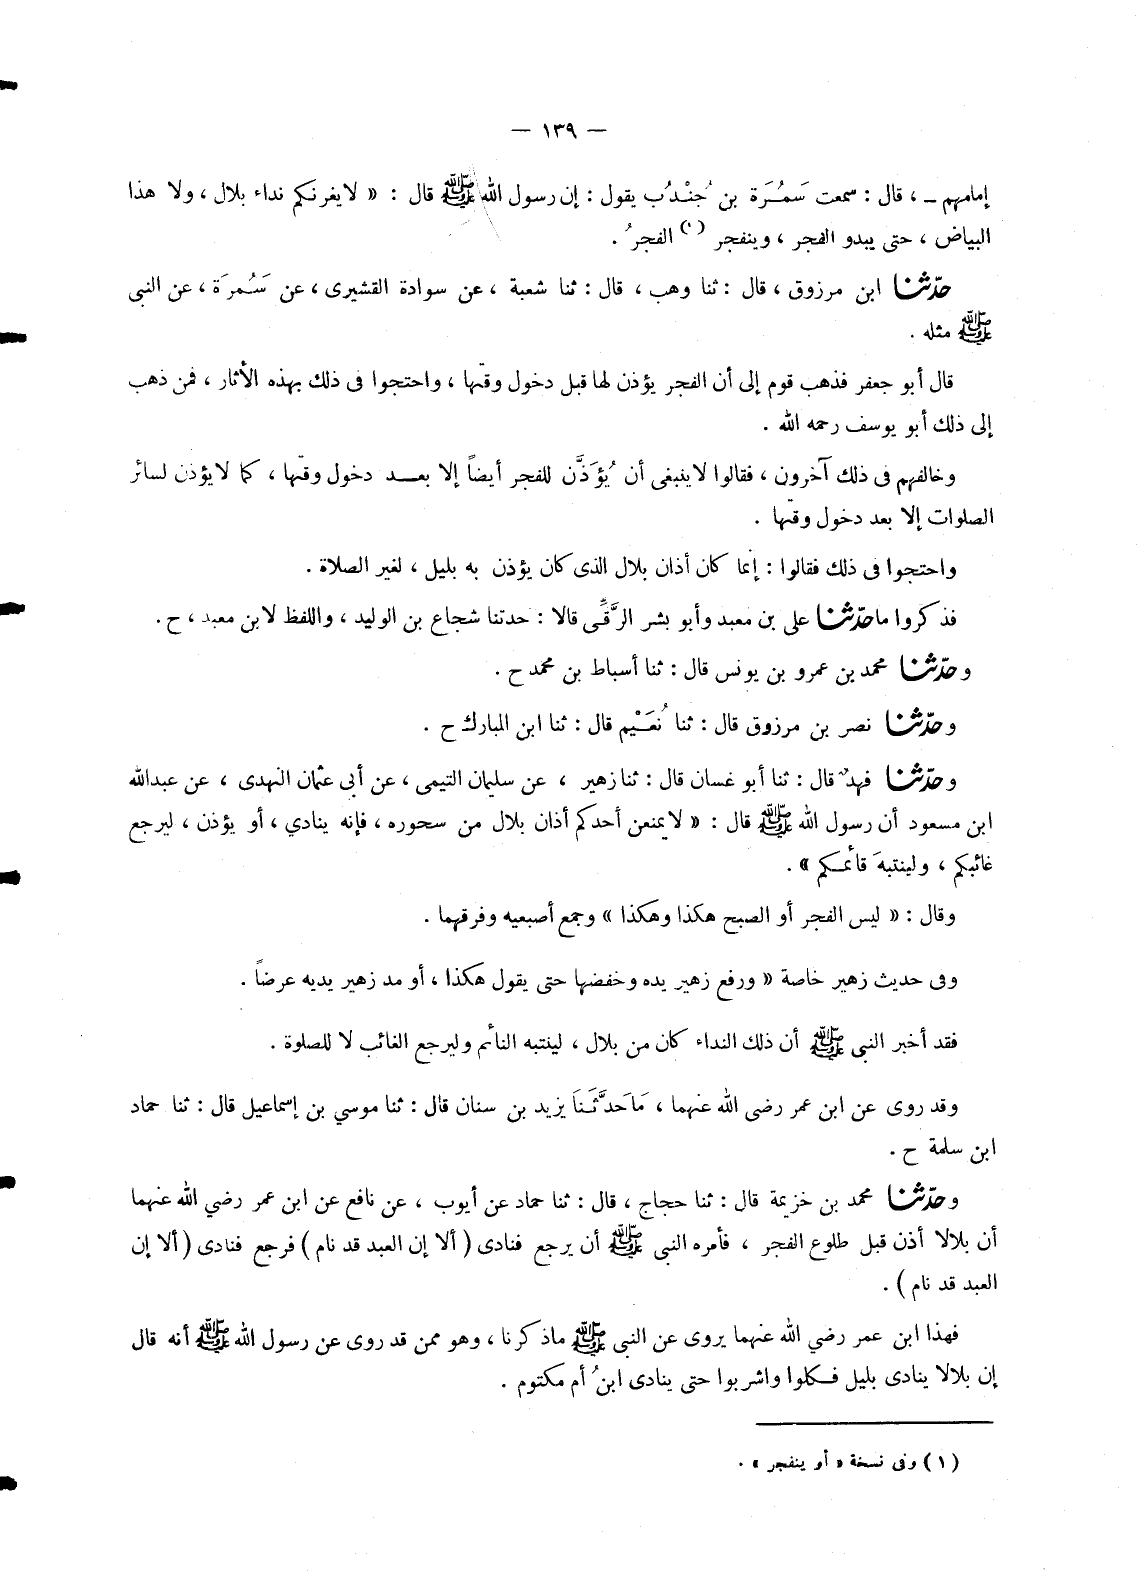 — ١٣٩ —
إمامهم ـ ، قال : سمعت سَمُرَة بن جُنْدُب يقول : إن رسول الله ﷺ قال : « لايغرنكم نداء بلال ، ولا هذا
البياض ، حتى يبدو الفجر ، وينفجر (١) الفجرُ .
حدّثنا ابن مرزوق ، قال : ثنا وهب ، قال : ثنا شعبة ، عن سوادة القشيرى ، عن سَمُرَة ، عن النبى
ﷺ مثله .
قال أبو جعفر فذهب قوم إلى أن الفجر يؤذن لها قبل دخول وقتها ، واحتجوا فى ذلك بهذه الأثار ، فمن ذهب
إلى ذلك أبو يوسف رحمه الله .
وخالفهم فى ذلك آخرون ، فقالوا لاينبغى أن يُؤَذَّن للفجر أيضاً إلا بعد دخول وقتها ، كما لايؤذن لسائر
الصلوات إلا بعد دخول وقتها .
واحتجوا فى ذلك فقالوا : إنما كان أذان بلال الذى كان يؤذن به بليل ، لغير الصلاة .
فذكروا ماحدّثنا على بن معبد وأبو بشر الرَّقِّى قالا : حدثنا شجاع بن الوليد ، واللفظ لابن معبد ، ح .
وحدّثنا محمد بن عمرو بن يونس قال : ثنا أسباط بن محمد ح .
وحدّثنا نصر بن مرزوق قال : ثنا نُعَيْم قال : ثنا ابن المبارك ح .
وحدّثنا فهدٌ قال : ثنا أبو غسان قال : ثنا زهير ، عن سليمان التيمى ، عن أبى عثمان النهدى ، عن عبدالله
ابن مسعود أن رسول الله ﷺ قال : « لايمنعن أحدكم أذان بلال من سحوره ، فإنه ينادي ، أو يؤذن ، ليرجع
غائبكم ، ولينتبهَ قأئمكم » .
وقال : « ليس الفجر أو الصبح هكذا وهكذا » وجمع أصبعيه وفرقهما .
وفى حديث زهير خاصة « ورفع زهير يده وخفضها حتى يقول هكذا ، أو مد زهير يديه عرضاً .
فقد أخبر النبى ﷺ أن ذلك النداء كان من بلال ، لينتبه النأئم وليرجع الغائب لا للصلوة .
وقد روى عن ابن عمر رضى الله عنهما ، مَاحَدَّثَنَا يزيد بن سنان قال : ثنا موسي بن إسماعيل قال : ثنا حماد
ابن سلمة ح .
وحدّثنا محمد بن خزيمة قال : ثنا حجاج ، قال : ثنا حماد عن أيوب ، عن نافع عن ابن عمر رضي الله عنهما
أن بلالا أذن قبل طلوع الفجر ، فأمره النبى ﷺ أن يرجع فنادى ( ألا إن العبد قد نام ) فرجع فنادى ( ألا إن
العبد قد نام ) .
فهذا ابن عمر رضي الله عنهما يروى عن النبى ﷺ ماذكرنا ، وهو ممن قد روى عن رسول الله ﷺ أنه قال
إن بلالا ينادى بليل فكلوا واشربوا حتى ينادى ابنُ أم مكتوم .
(١) وفى نسخة « أو ينفجر » .